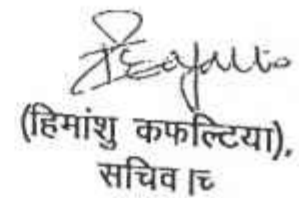 (हिमांशु कफल्टिया),
सचिव।